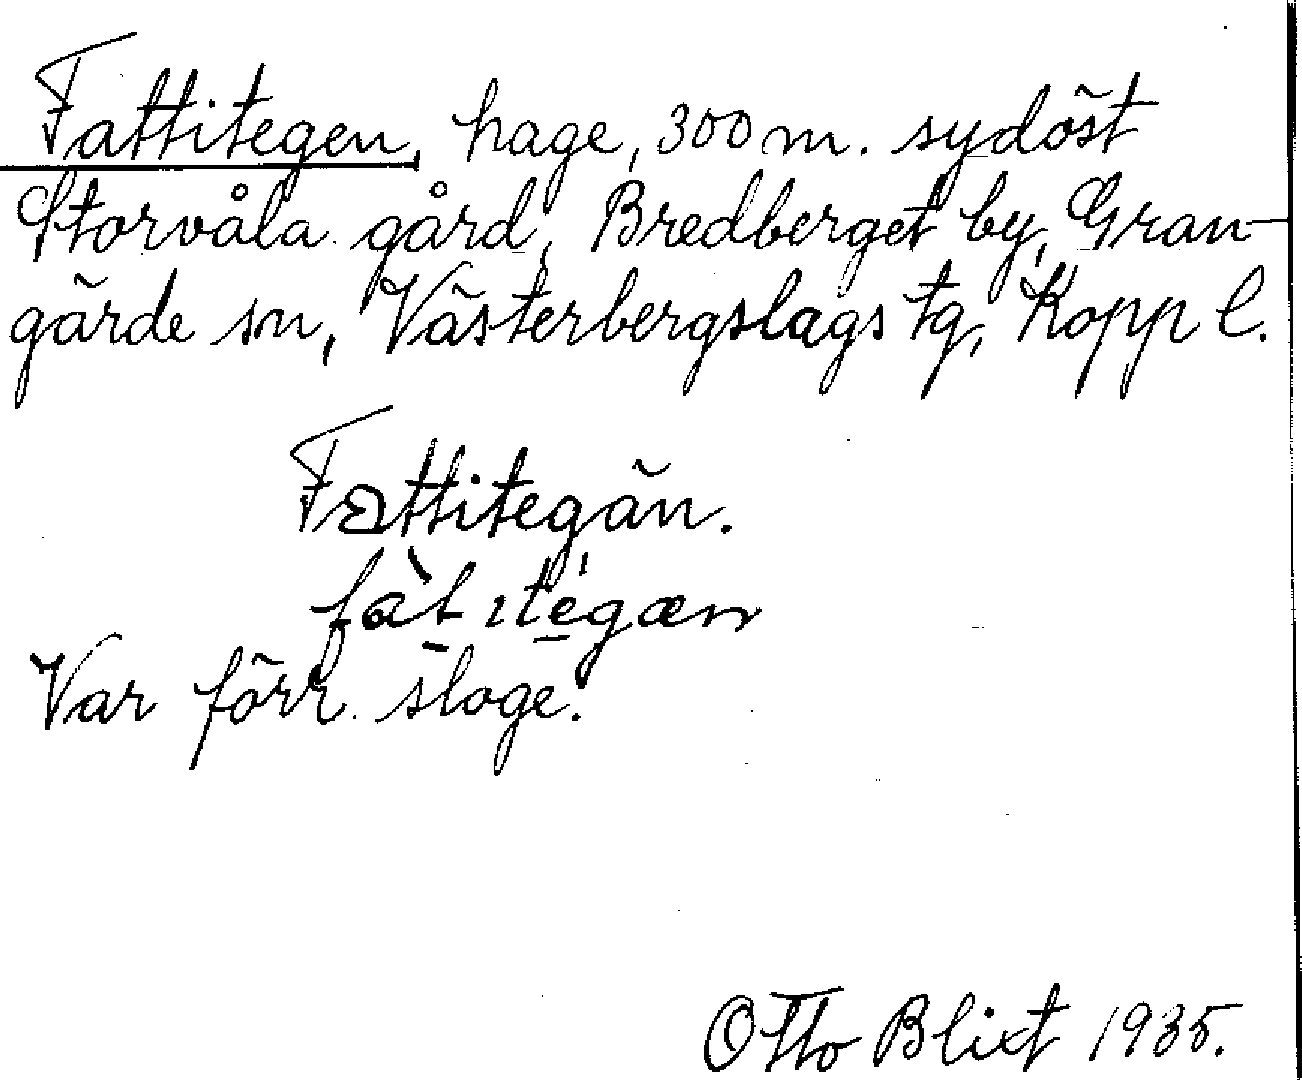 Fattitegen, hage, 300 m. sydöst
Storvåla gård, Bredberget by, Gran-
gärde sn, Västerbergslags tg, Kopp l.
Fattitegän.
Var förr släge.
Otto Blixt 1935.